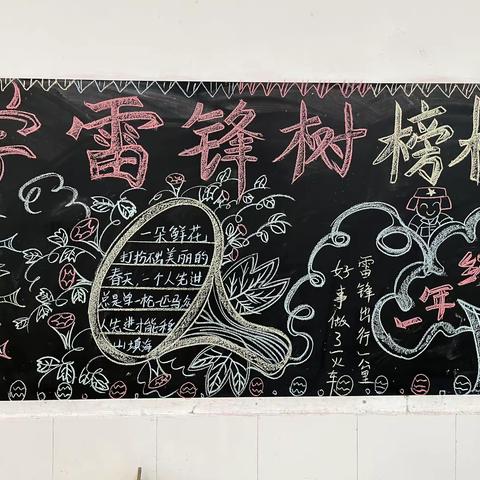 学雷锋树榜
一朵鲜花
打扮不出美丽的
春天,一个人先进
总是单枪匹马众
人先进才能移
山填海
雷锋出行一公里
好事做了一火车
一年